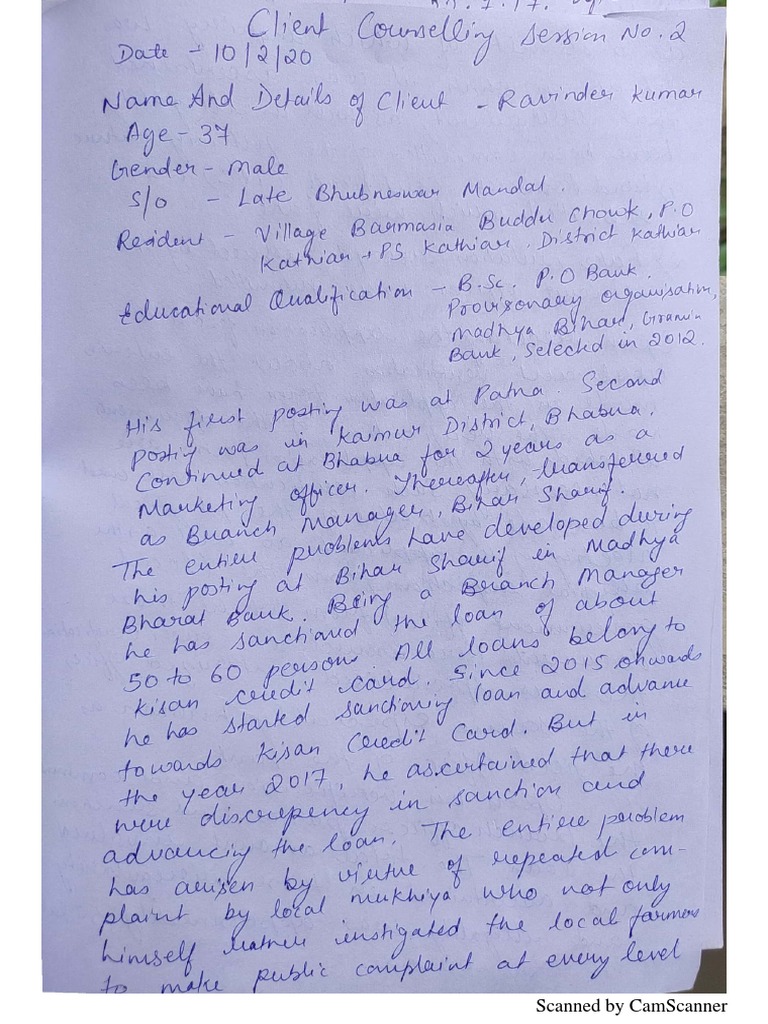 Client Counselling Session No. 2
Date - 10/2/20
Name And Details of Client - Ravinder Kumar
Age - 37
Gender - Male
S/o - Late Bhubneswar Mandal.
Resident - Village Barmasia Buddu Chowk, P.O
Kathiar, PS Kathiar, District Kathiar
Educational Qualification - B.Sc. P.O Bank.
Provisonary organisation,
Madhya Bihar, Gramin
Bank, Selected in 2012.
His first posting was at Patna. Second
posting was in Kaimur District, Bhabua.
Continued at Bhabua for 2 years as a
Marketing officer. Thereafter, transferred
as Branch Manager, Bihar Sharif.
The entire problems have developed during
his posting at Bihar Sharif in Madhya
Bharat Bank. Being a Branch Manager
he has sanctioned the loan of about
50 to 60 persons All loans belong to
Kisan credit card. Since 2015 onwards
he has started sanctioning loan and advance
towards Kisan Credit Card. But in
the year 2017, he ascertained that there
were discrepency in sanction and
advancing the loan. The entire problem
has arisen by virtue of repeated com-
plaint by local mukhiya who not only
himself rather instigated the local farmers
to make public complaint at every level
Scanned by CamScanner